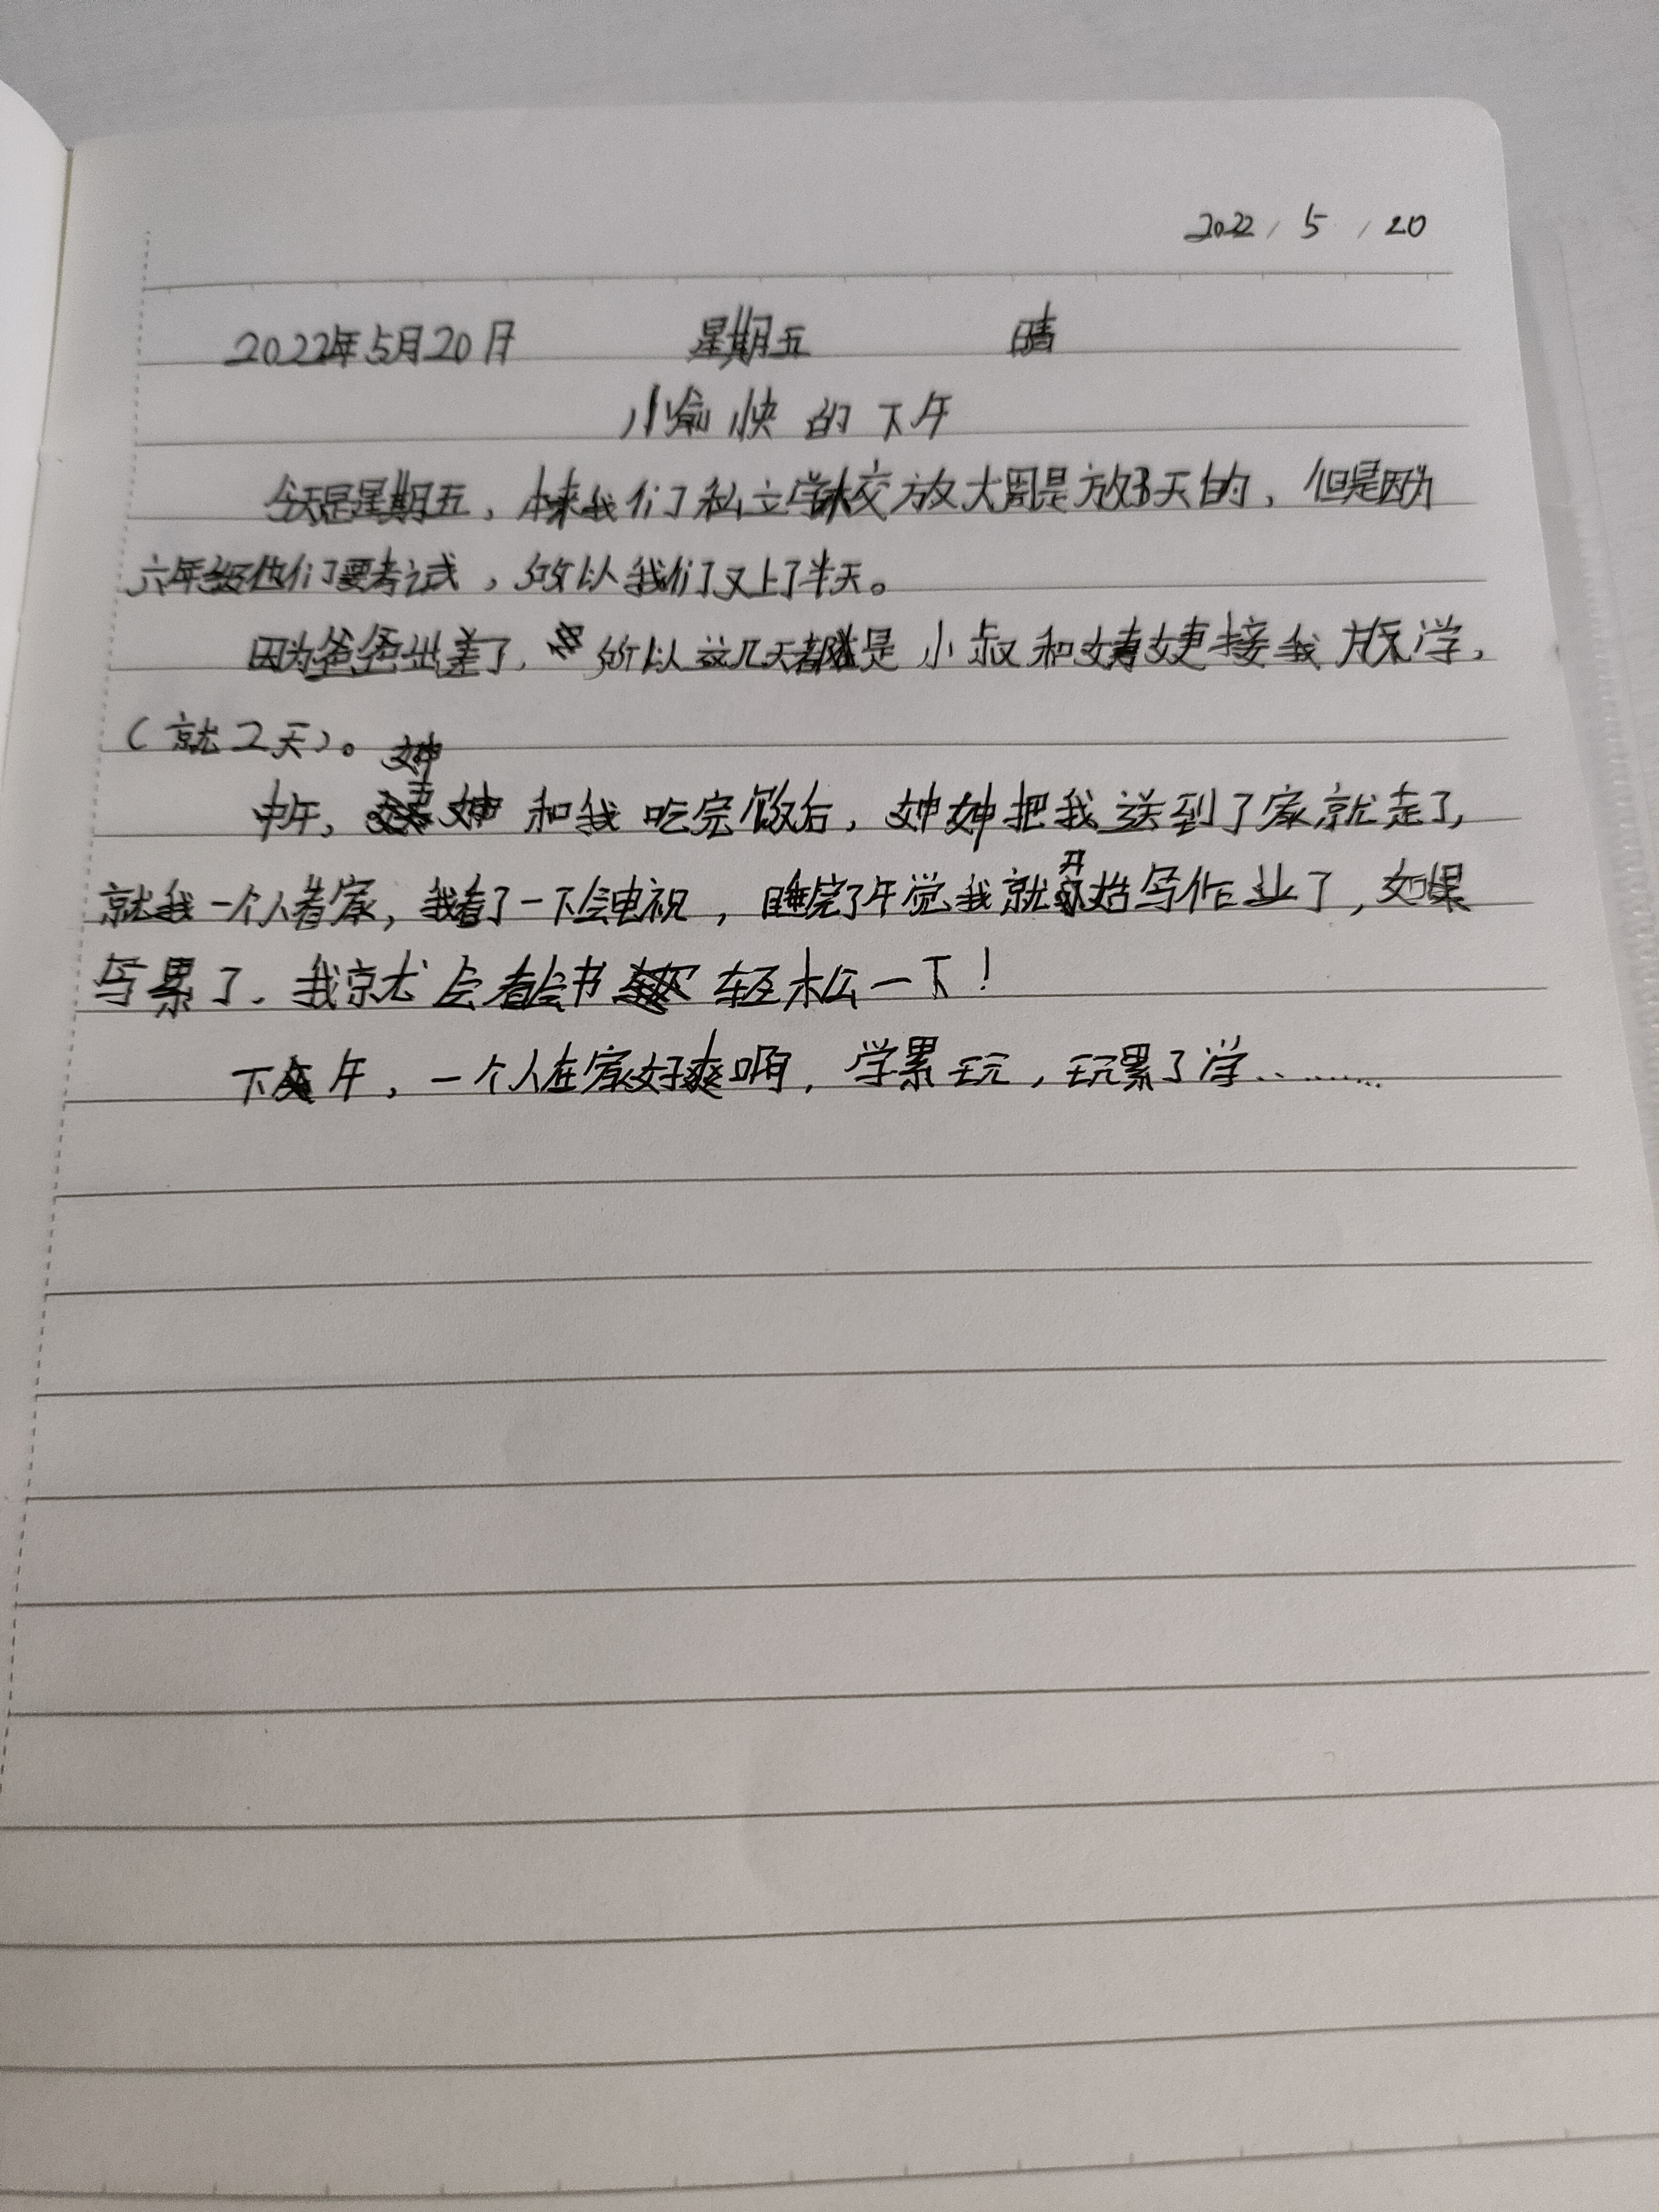 2022/5/20
2022年5月20日 星期五 晴
小愉快的下午
今天是星期五，本来我们私立学校放大周是放3天的，但是因为
六年级他们要考试，所以我们又上了半天。
因为爸爸出差了，所以这几天都是小叔和婶婶接我放学，
（就2天）。
中午，婶婶和我吃完饭后，婶婶把我送到了家就走了，
就我一个人看家，我看了一下会电视，睡完了午觉我就开始写作业了，如果
写累了，我就会看会书轻松一下！
下午，一个人在家好爽啊，学累玩，玩累了学………